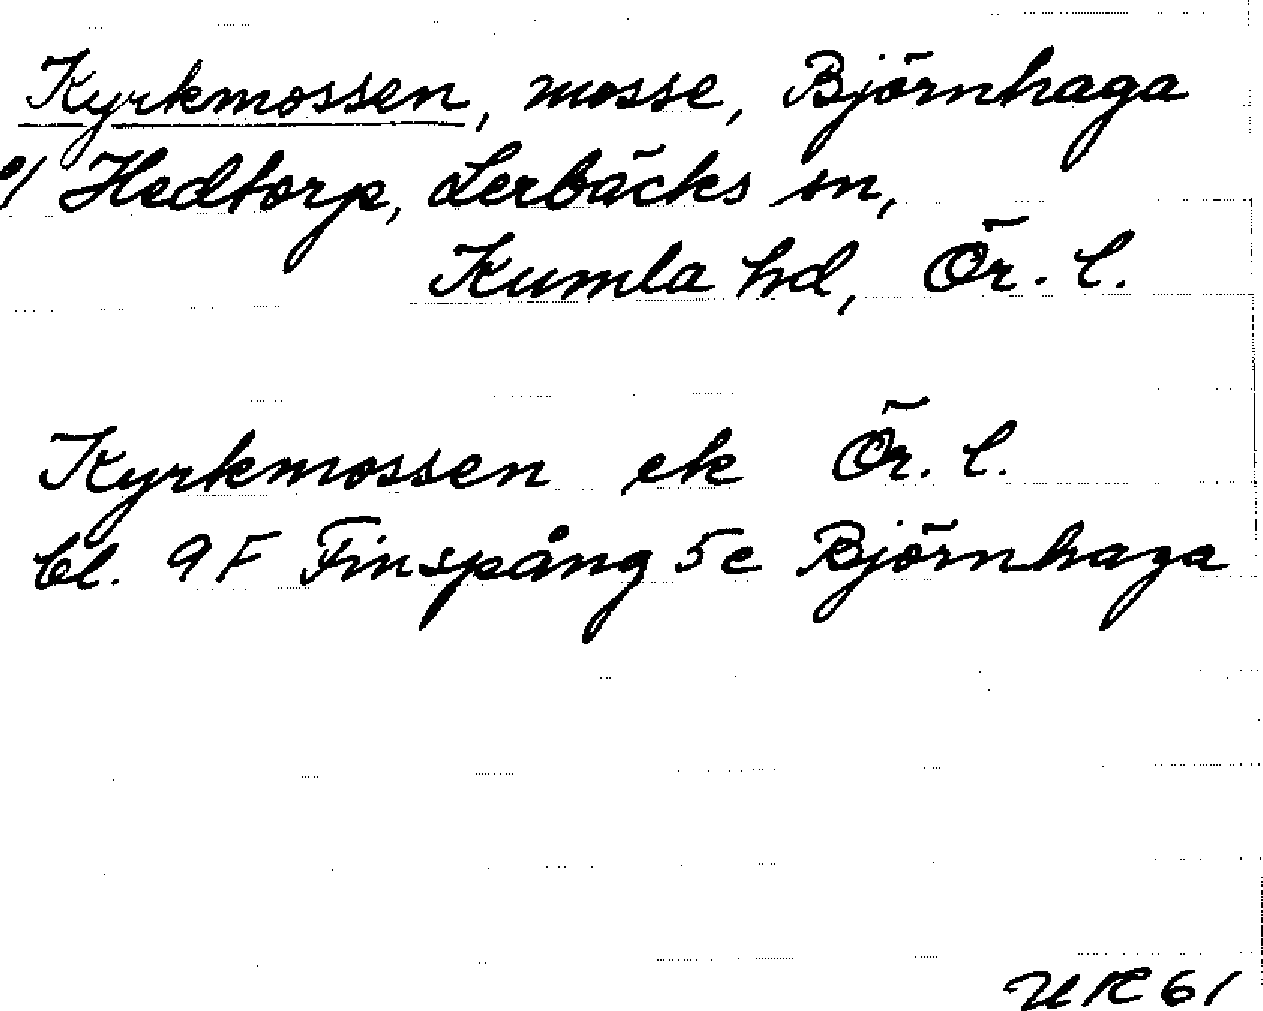 Kyrkmossen, mosse, Björnhaga
o/ Hedtorp, Lerbäcks sn,
Kumla hd, Ör. l.
Kyrkmossen ek Ör. l.
bl. 9F Finspång 5e Björnhaga
61